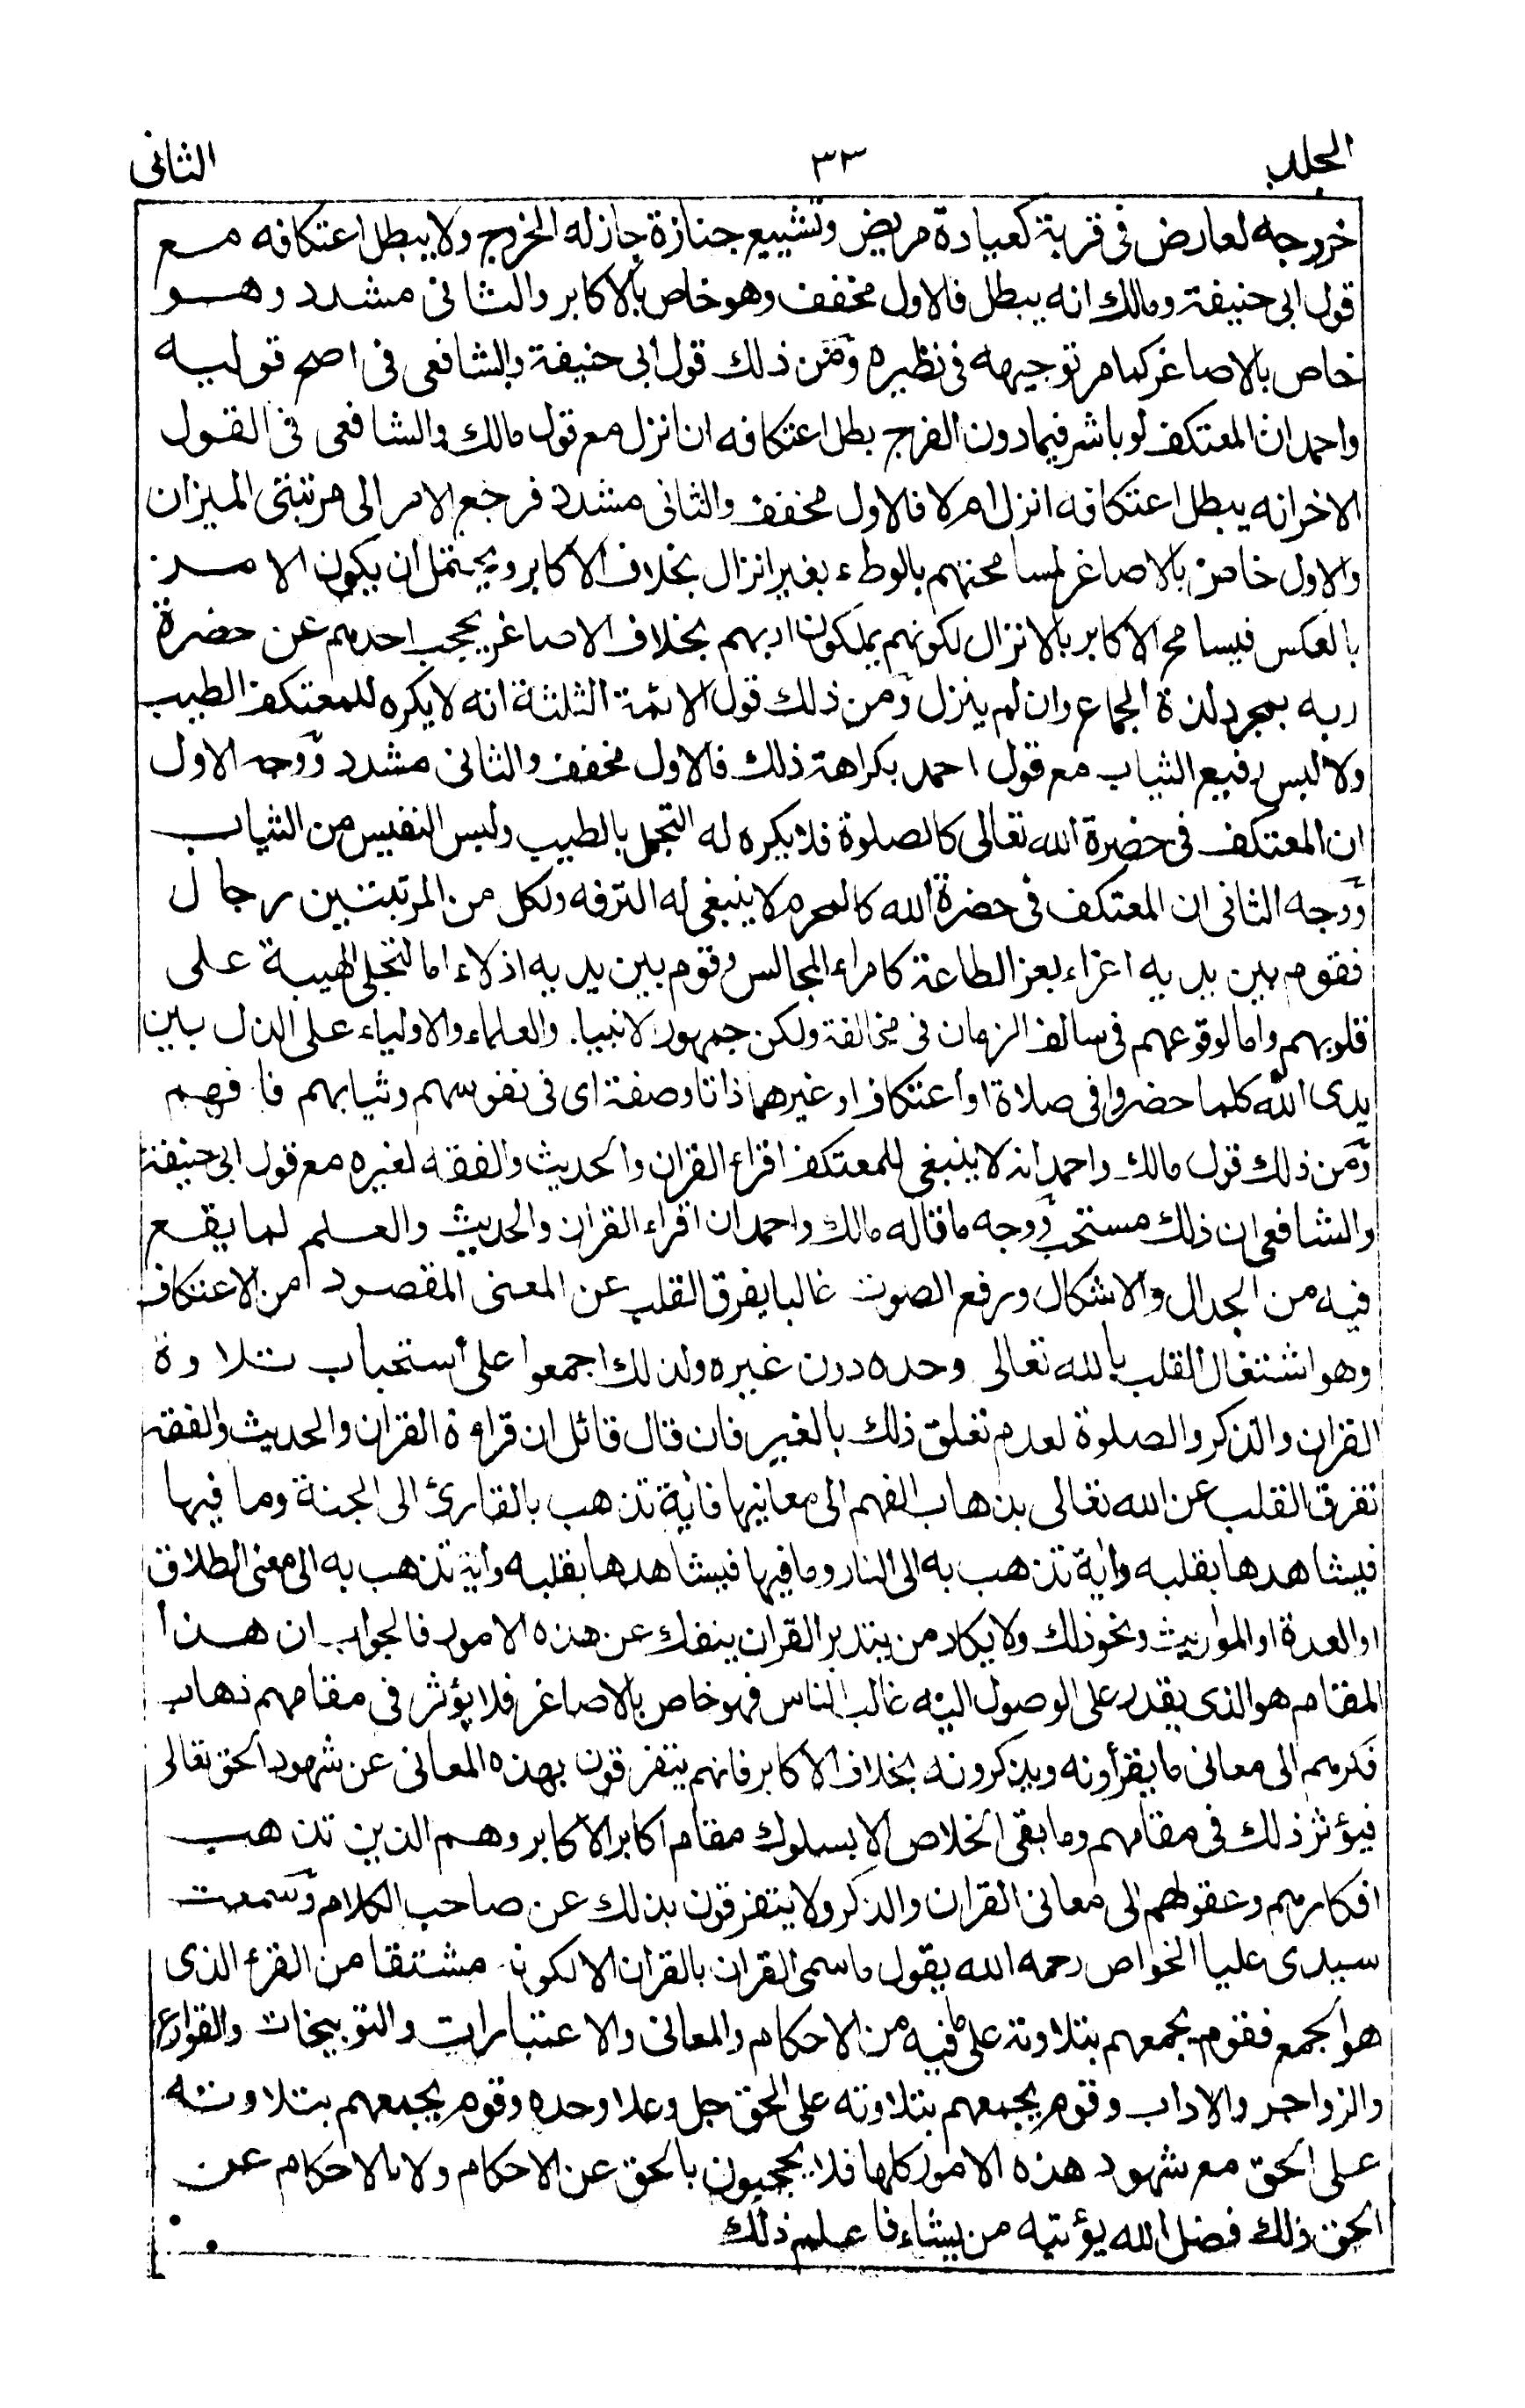 الجلد ٣٣ الثانى
خروجه لعارض فى قربة كعيادة مريض وتشييع جنازة جاز له الخروج ولا يبطل اعتكافه مع
قول ابى حنيفة ومالك انه يبطل فالاول مخفف وهو خاص بالاكابر والثانى مشدد وهو
خاص بالاصاغر كما مر توجيهه فى نظيره ومن ذلك قول ابى حنيفة والشافعى فى اصح قوليه
واحمد ان المعتكف لو باشر فيما دون الفرج بطل اعتكافه ان انزل مع قول مالك والشافعى فى القول
الاخر انه يبطل اعتكافه انزل ام لا فالاول مخفف والثانى مشدد فرجع الامر الى مرتبتى الميزان
والاول خاص بالاصاغر لمسامحتهم بالوطء بغير انزال بخلاف الاكابر ويحتمل ان يكون الامر
بالعكس فيسامح الاكابر بالانزال لكونهم يملكون اربهم بخلاف الاصاغر يحجب احدهم عن حضرة
ربه بمجرد لذة الجماع وان لم ينزل ومن ذلك قول الائمة الثلثة انه لا يكره للمعتكف الطيب
ولا لبس رفيع الثياب مع قول احمد بكراهة ذلك فالاول مخفف والثانى مشدد ووجه الاول
ان المعتكف فى حضرة الله تعالى كالصلوة فلا يكره له التجمل بالطيب ولبس النفيس من الثياب
ووجه الثانى ان المعتكف فى حضرة الله كالمحرم لا ينبغى له الترفه ولكل من المرتبتين رجال
فقوم بين يديه اعزاء بعز الطاعة كامراء المجالس وقوم بين يديه اذلاء اما لتجلى الهيبة على
قلوبهم واما لوقوعهم فى سالف الزمان فى مخالفة ولكن جمهور الانبياء والعلماء والاولياء على الذل بين
يدى الله كلما حضروا فى صلاة او أعتكاف او غيرهما ذاتا وصفة اى فى نفوسهم وثيابهم فافهم
ومن ذلك قول مالك واحمد انه لا ينبغى للمعتكف اقراء القران والحديث والفقه لغيره مع قول ابى حنيفة
والشافعى ان ذلك مستحب ووجه ما قاله مالك واحمد ان اقراء القران والحديث والعلم لما يقع
فيه من الجدال والاشكال ورفع الصوت غالبا يفرق القلب عن المعنى المقصود من الاعتكاف
وهو اشتغال القلب بالله تعالى وحده دون غيره ولذلك اجمعوا على أستحباب تلاوة
القران والذكر والصلوة لعدم تعلق ذلك بالغير فان قال قائل ان قراءة القران والحديث والفقه
تفرق القلب عن الله تعالى بذهاب الفهم الى معانيها فاية تذهب بالقارئ الى الجنة وما فيها
فيشاهدها بقلبه واية تذهب به الى النار وما فيها فيشاهدها بقلبه وأية تذهب به الى معنى الطلاق
او العدة او المواريث ونحو ذلك ولا يكاد من يتدبر القران ينفك عن هذه الامور فالجواب ان هذا
المقام هو الذى يقدر على الوصول اليه غالب الناس فهو خاص بالاصاغر فلا يؤثر فى مقامهم ذهاب
فكرهم الى معانى ما يقرأونه ويذكرونه بخلاف الاكابر فانهم يتفرقون بهذه المعانى عن شهود الحق تعالى
فيؤثر ذلك فى مقامهم وما بقى الخلاص الا بسلوك مقام اكابر الاكابر وهم الذين تذهب
افكارهم وعقولهم الى معانى القران والذكر ولا يتفرقون بذلك عن صاحب الكلام وسمعت
سيدى عليا الخواص رحمه الله يقول ما سمى القران بالقران الا لكونه مشتقا من القرء الذى
هو الجمع فقوم يجمعهم بتلاوته على ما فيه من الاحكام والمعانى والاعتبارات والتوبيخات والقوارع
والزواجر والاداب وقوم يجمعهم بتلاوته على الحق جل وعلا وحده وقوم يجمعهم بتلاوته
على الحق مع شهود هذه الامور كلها فلا يحجبون بالحق عن الاحكام ولا بالاحكام عن
الحق ذلك فضل الله يؤتيه من يشاء فاعلم ذلك